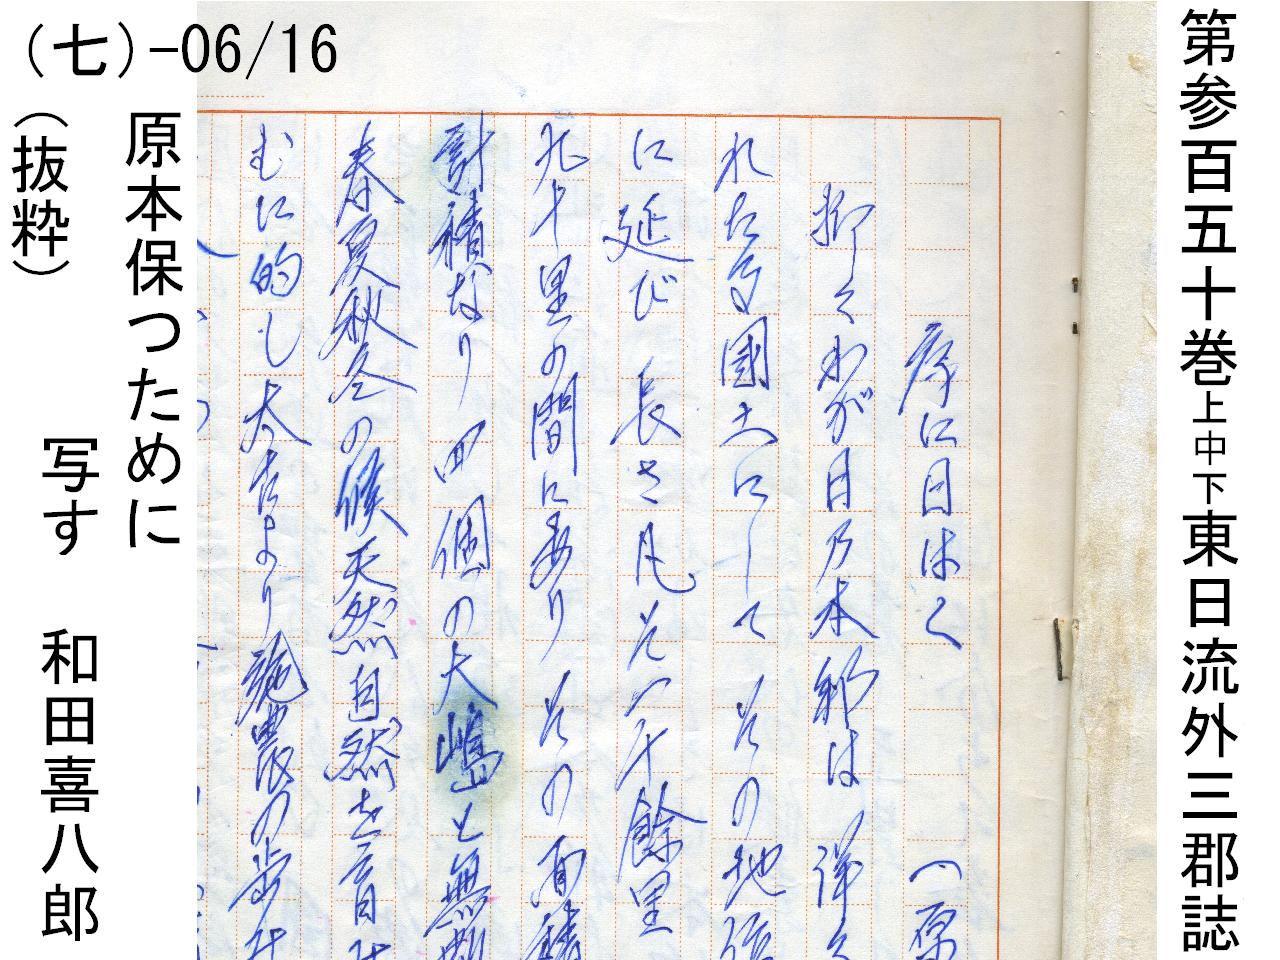 第参百五十巻上中下東日流外三郡誌
序に曰はく 一、原
抑々わが日乃本邦は洋々
れたる國土にして その地
に延び 長さ凡そ一千餘里
九十里の間に あり その面積
計積なり 四個の大嶋と無
春夏秋冬の候天然自然を
むに的し太古より 農の
（七）-06/16
原本保つために
写す 和田喜八郎
（抜粋）